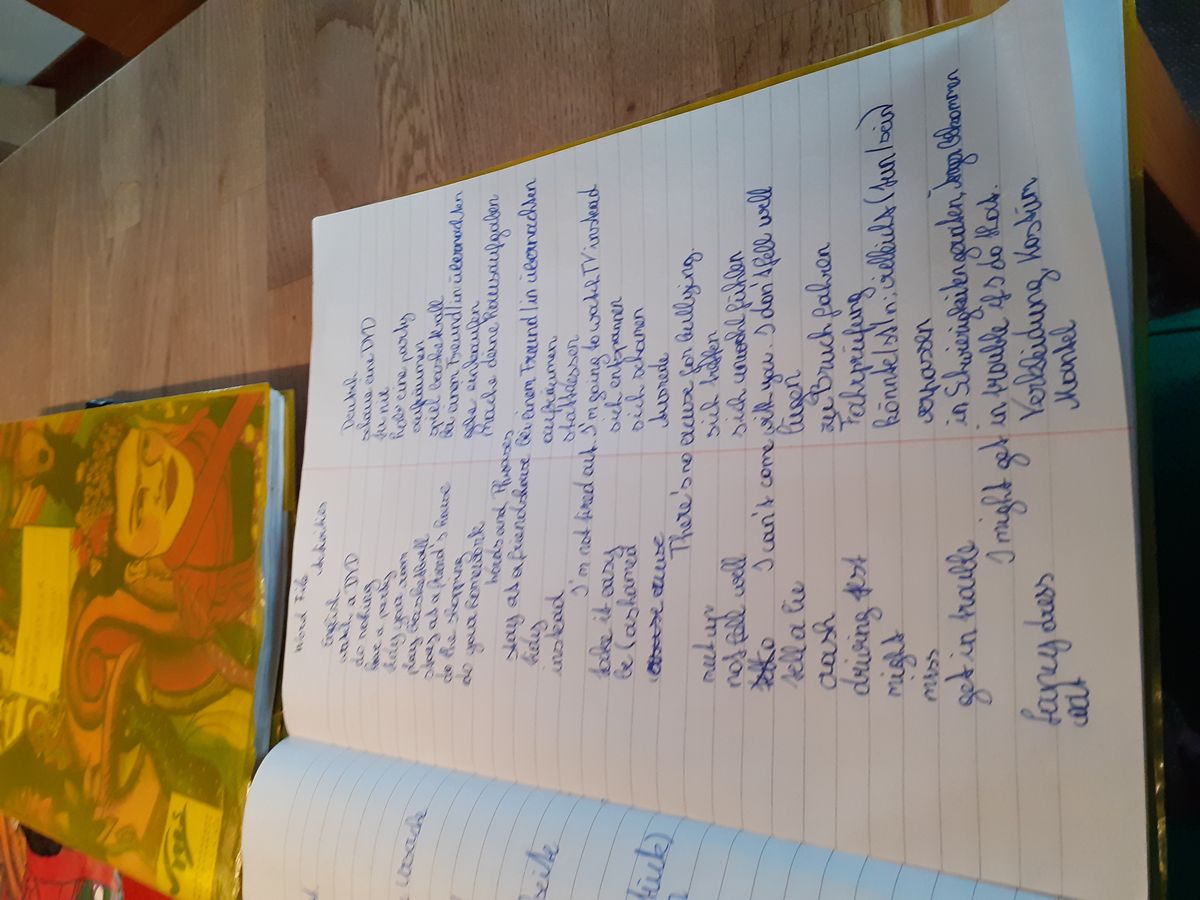 Word File
Activities
English Deutsch
watch a DVD schaue eine DVD
do nothing
have a party habe eine party
tidy your room aufräumen
play basketball spiel basketball
stay at a friend's house bei einem Freund/in übernachten
do the shopping gehe einkaufen
do your homework Mache deine Hausaufgaben
Words and Phrases
stay at a friends house bei einem Freund/in übernachten
tidy aufräumen
instead stattdessen
I'm not tired out. I'm going to watch TV instead
take it easy sich entspannen
be (ashamed sich schämen
cause
There's no cause for bullying.
meet up sich treffen
not fell well sich unwohl fühlen
I can't come with you. I don't fell well
tell a lie lügen
crash zu Bruch fahren
driving test Fahrprüfung
might könnte(st/n; vielleicht (tun/sein)
miss verpassen
get in trouble in Schwierigkeiten geraten, Ärger bekommen
I might get in trouble if I do that.
fancy dress Verkleidung, Kostüm
coat Mantel